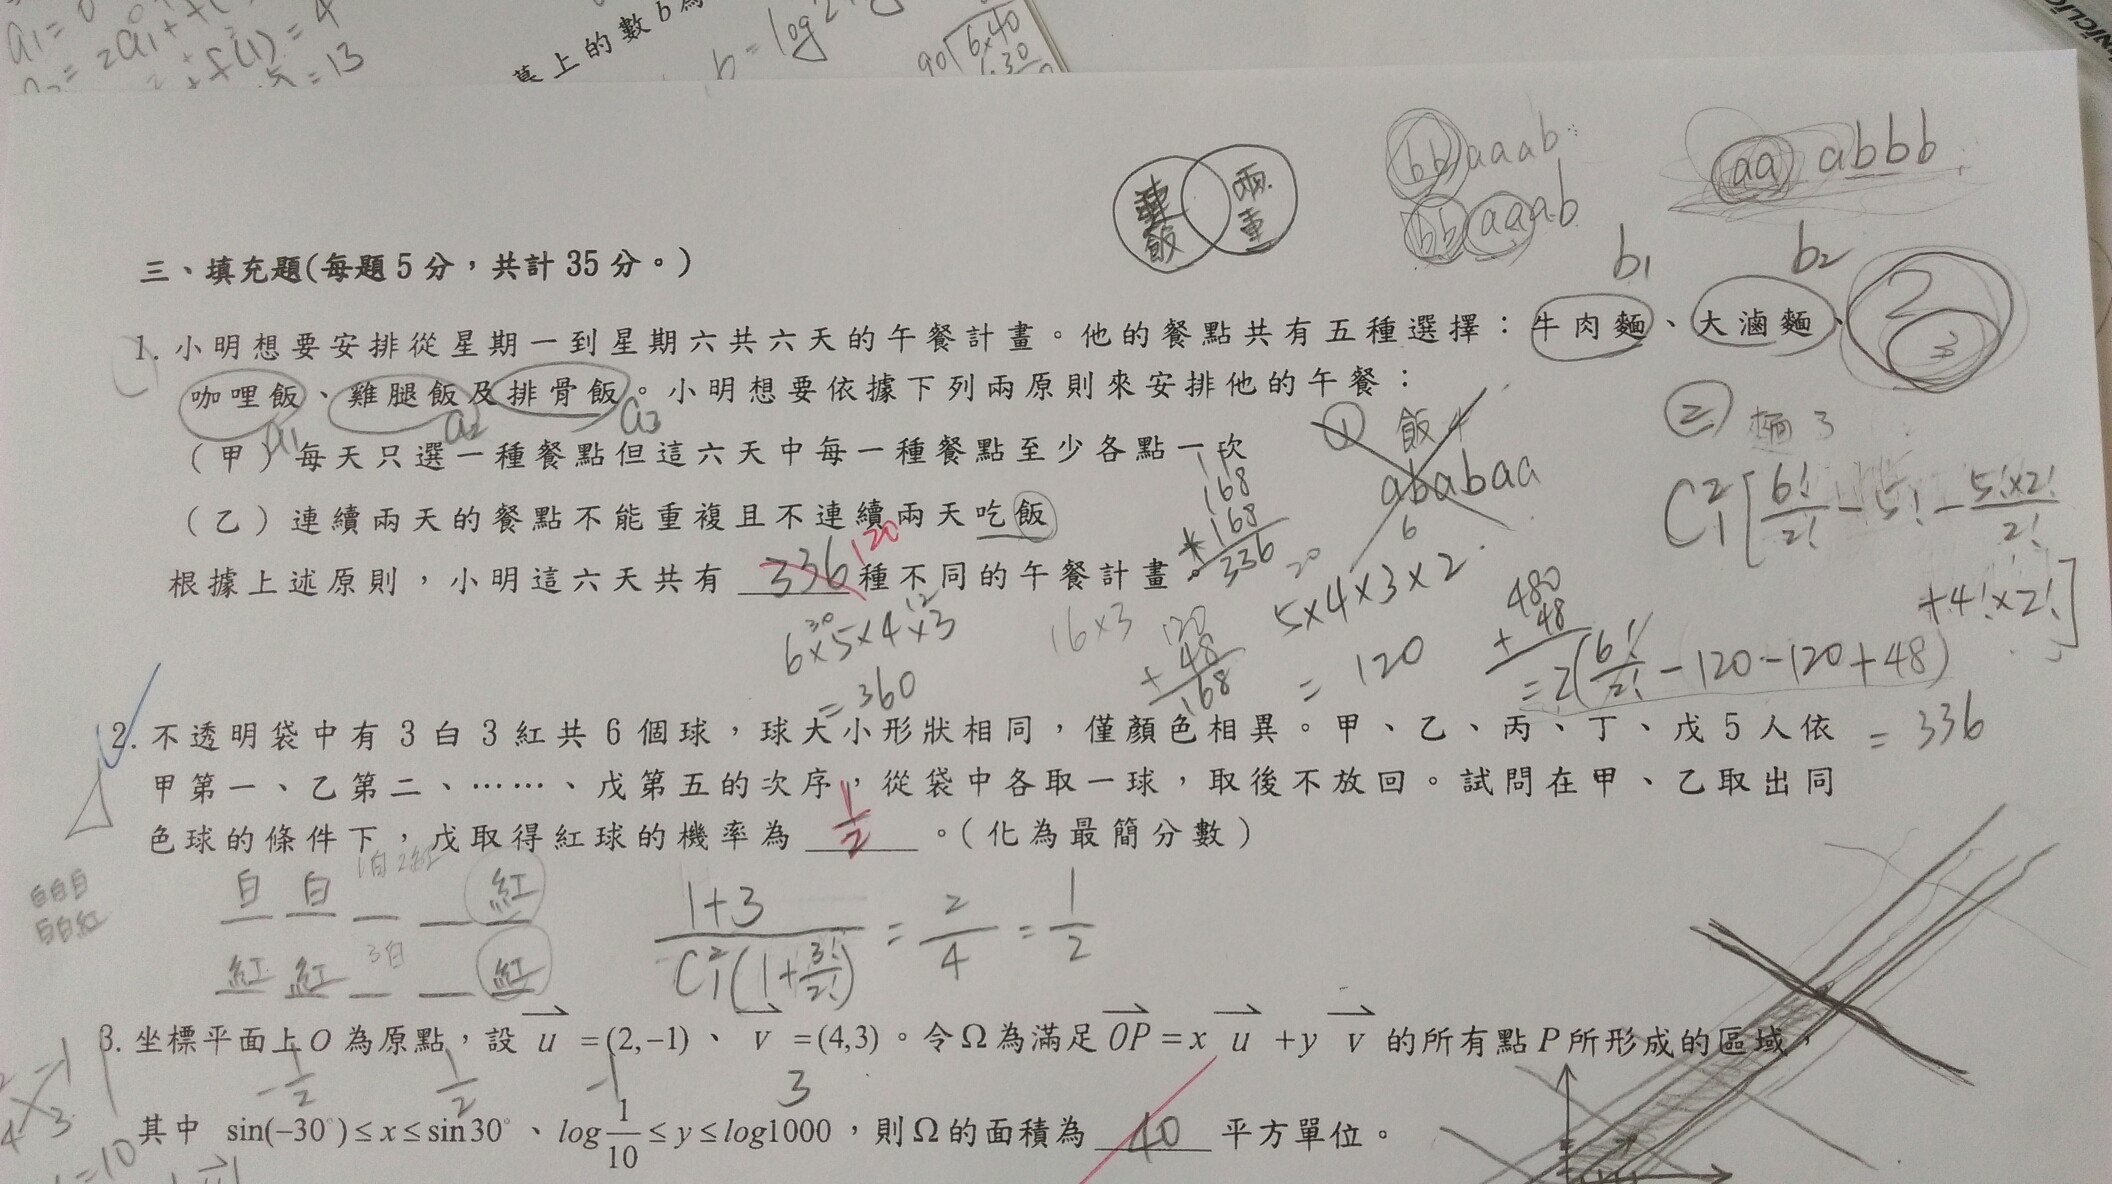 a₁=0
=2a₁+f(1)=4
=13
上的數b為
b=log2
90 6.40
三、填充題(每題5分，共計35分。)
連 飯 兩 重
bb aaab
bb aaab
aa abbb
b₁ b₂ 2 3
1. 小明想要安排從星期一到星期六共六天的午餐計畫。他的餐點共有五種選擇：牛肉麵、大滷麵、
咖哩飯、雞腿飯及排骨飯。小明想要依據下列兩原則來安排他的午餐：
a₁ a₂ a₃
(甲)每天只選一種餐點但這六天中每一種餐點至少各點一次
(乙)連續兩天的餐點不能重複且不連續兩天吃飯
根據上述原則，小明這六天共有 336 120 種不同的午餐計畫。
① 飯4
ababaa
6
② 麵3
C²₁[6!/2! - 5! - 5!×2!/2!
+4!×2!]
=2(6!/2! -120-120+48)
=336
168
+168
336
6×5×4×3
=360
16×3
120
+48
168
5×4×3×2
=120
480
+ 48
2. 不透明袋中有3白3紅共6個球，球大小形狀相同，僅顏色相異。甲、乙、丙、丁、戊5人依
甲第一、乙第二、……、戊第五的次序，從袋中各取一球，取後不放回。試問在甲、乙取出同
色球的條件下，戊取得紅球的機率為 1/2 。(化為最簡分數)
白白白
白白紅
白 白 1白2紅 紅
紅 紅 3白 紅
(1+3)/(C²₁(1+3!/2!)) = 2/4 = 1/2
3. 坐標平面上O為原點，設 u⃗ =(2,−1)、 v⃗ =(4,3)。令Ω為滿足 OP⃗ =x u⃗ +y v⃗ 的所有點P所形成的區域，
-1/2 1/2 -1 3
其中 sin(−30°)≤x≤sin30°、log 1/10 ≤y≤log1000，則Ω的面積為 40 平方單位。
2 -1
4 3
=10